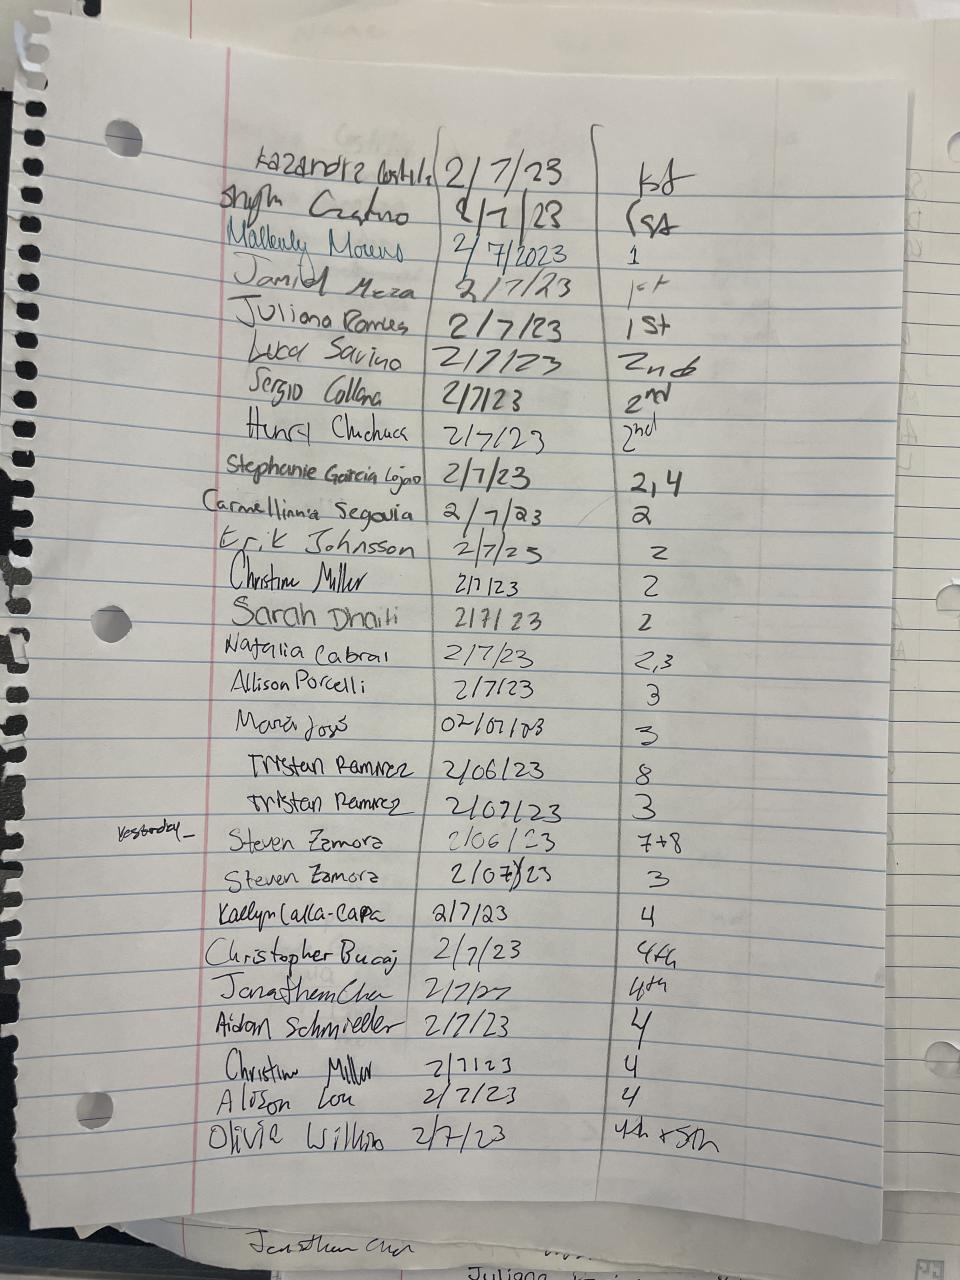 Kazandra Castillo 2/7/23 1st
2/7/23 1st
Moreno 2/7/2023 1
Jamiel Meza 2/7/23 1st
Juliana Ramires 2/7/23 1st
Luca Savino 2/7/23 2nd
Sergio Collana 2/7/23 2nd
Henry Chichuca 2/7/23 2nd
Stephanie Garcia Lojano 2/7/23 2,4
Carmellinnia Segovia 2/7/23 2
Erik Johnsson 2/7/23 2
Christine Miller 2/7/23 2
Sarah Dhaiti 2/7/23 2
Natalia Cabral 2/7/23 2,3
Allison Porcelli 2/7/23 3
María José 02/07/23 3
Tristan Ramirez 2/06/23 8
Tristan Ramirez 2/07/23 3
Yesterday - Steven Zamora 2/06/23 7+8
Steven Zamora 2/07/23 3
Kaelyn Calla-Capa 2/7/23 4
Christopher Bucaj 2/7/23 4th
Jonathan Chen 2/7/23 4th
Aidan Schmieder 2/7/23 4
Christine Miller 2/7/23 4
Alison Lou 2/7/23 4
Olivia Wilkins 2/7/23 4th + 5th
Jonathan Chen
Juliana